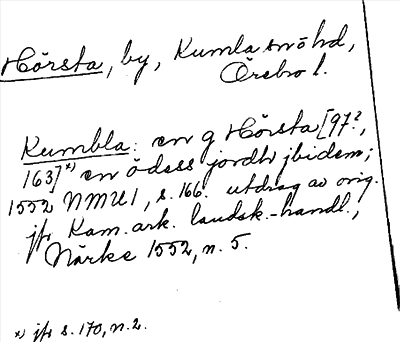 Hörsta, by, Kumla snöhd,
Örebro l.
Kumbla: en g Hörsta [97?,
163]*) en ödess jordh jbidem;
1552 NMU 1, s. 166. utdrag av orig.
jfr Kam. ark. landsk.-handl.,
Närke 1552, n. 5.
*) jfr s. 170, n. 2.